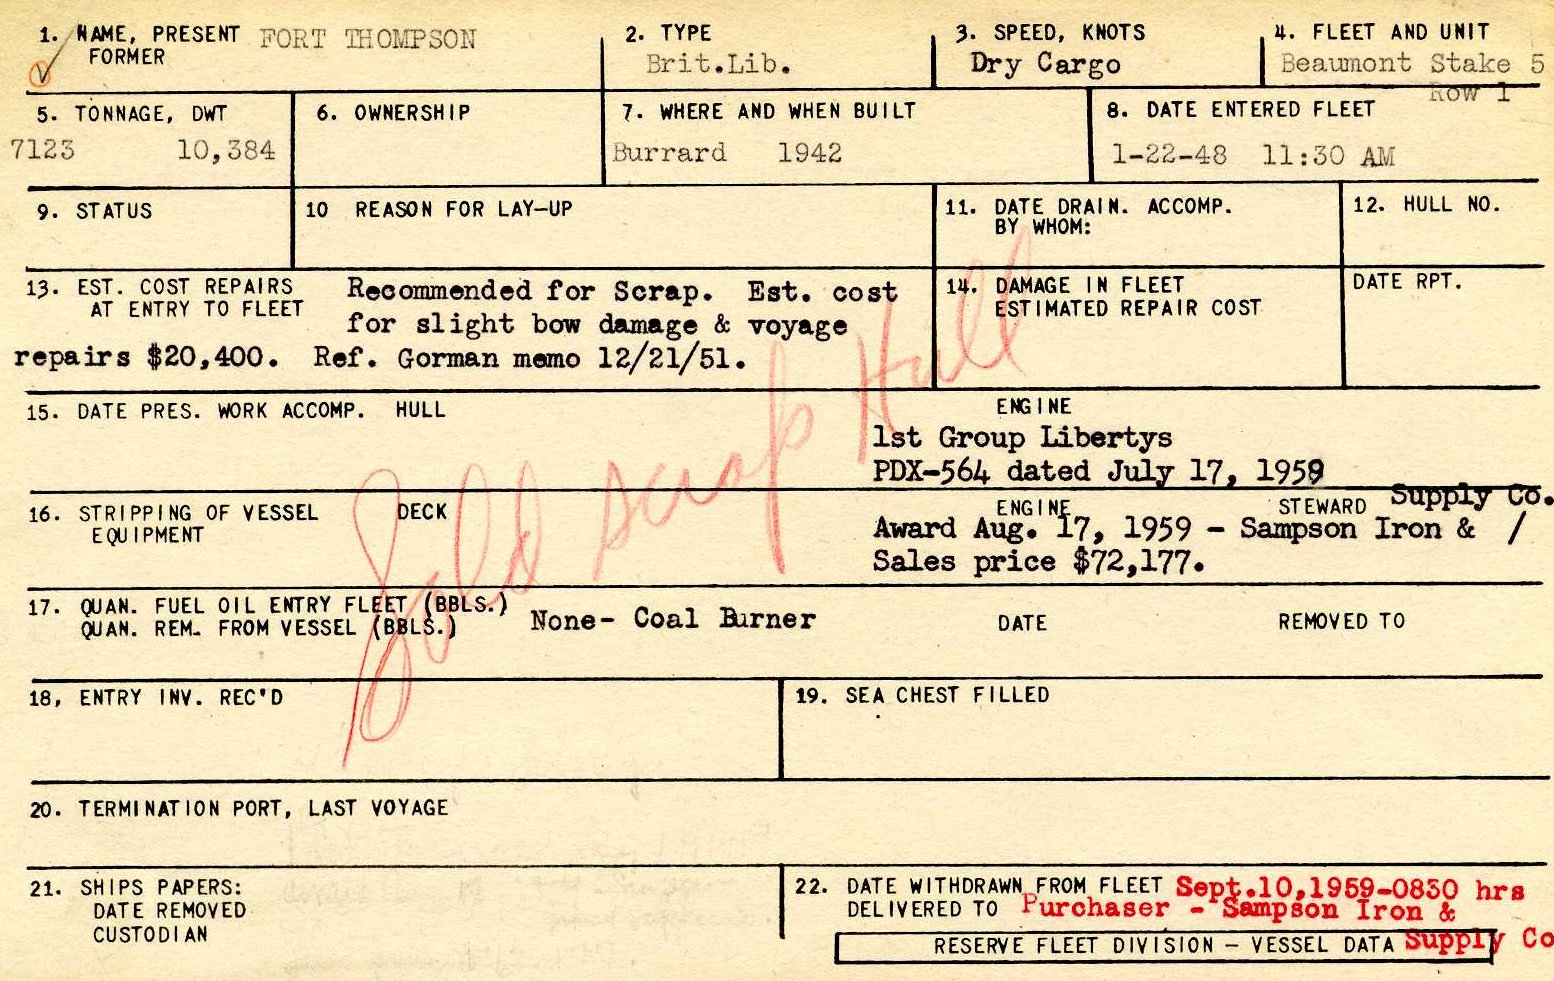 1. NAME, PRESENT FORT THOMPSON
FORMER
2. TYPE
Brit.Lib.
3. SPEED, KNOTS
Dry Cargo
4. FLEET AND UNIT
Beaumont Stake 5
Row 1
5. TONNAGE, DWT
7123 10,384
6. OWNERSHIP
7. WHERE AND WHEN BUILT
Burrard 1942
8. DATE ENTERED FLEET
1-22-48 11:30 AM
9. STATUS
10 REASON FOR LAY-UP
11. DATE DRAIN. ACCOMP.
BY WHOM:
12. HULL NO.
13. EST. COST REPAIRS
AT ENTRY TO FLEET
Recommended for Scrap. Est. cost
for slight bow damage & voyage
repairs $20,400. Ref. Gorman memo 12/21/51.
14. DAMAGE IN FLEET
ESTIMATED REPAIR COST
DATE RPT.
Sold scrap Hull
15. DATE PRES. WORK ACCOMP. HULL
ENGINE
1st Group Libertys
PDX-564 dated July 17, 1959
16. STRIPPING OF VESSEL DECK
EQUIPMENT
ENGINE STEWARD Supply Co.
Award Aug. 17, 1959 - Sampson Iron & /
Sales price $72,177.
17. QUAN. FUEL OIL ENTRY FLEET (BBLS.)
QUAN. REM. FROM VESSEL (BBLS.)
None- Coal Burner
DATE REMOVED TO
18, ENTRY INV. REC'D
19. SEA CHEST FILLED
20. TERMINATION PORT, LAST VOYAGE
21. SHIPS PAPERS:
DATE REMOVED
CUSTODIAN
22. DATE WITHDRAWN FROM FLEET Sept.10,1959-0830 hrs
DELIVERED TO Purchaser - Sampson Iron &
RESERVE FLEET DIVISION - VESSEL DATA Supply Co